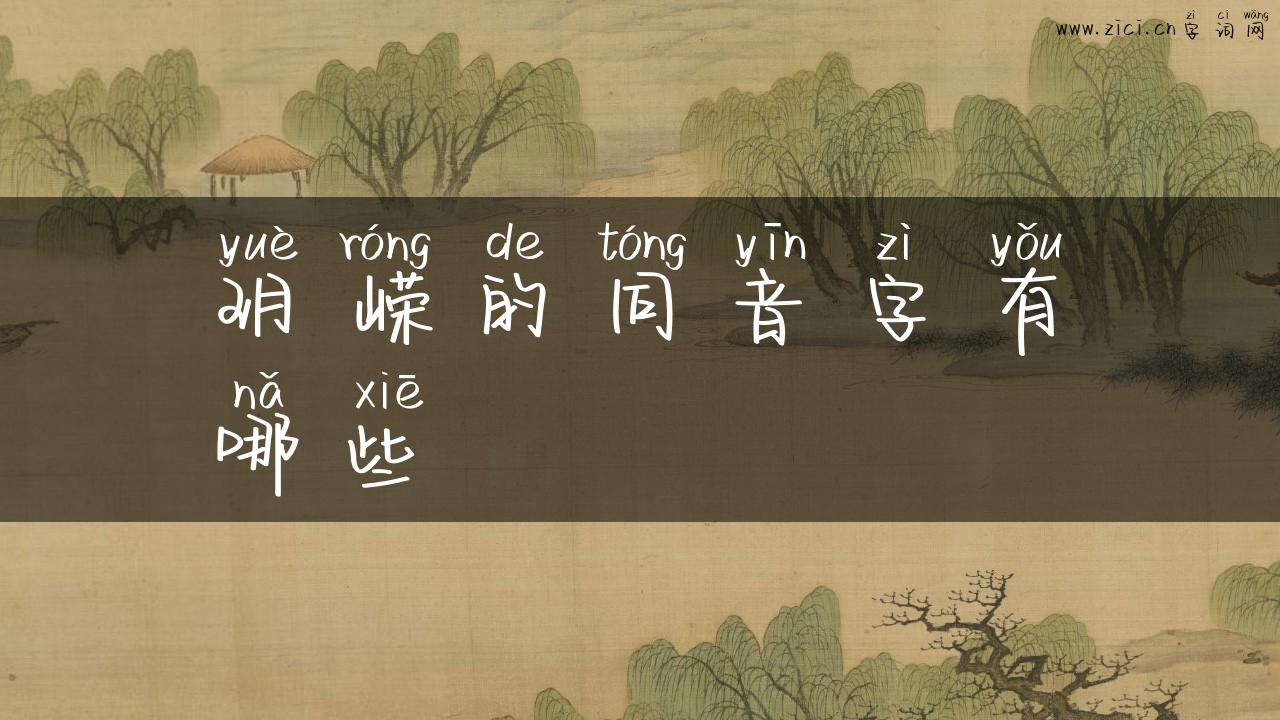 zì cí wǎng
www.zici.cn 字词网
yuè róng de tóng yīn zì yǒu
玥嵘的同音字有
nǎ xiē
哪些